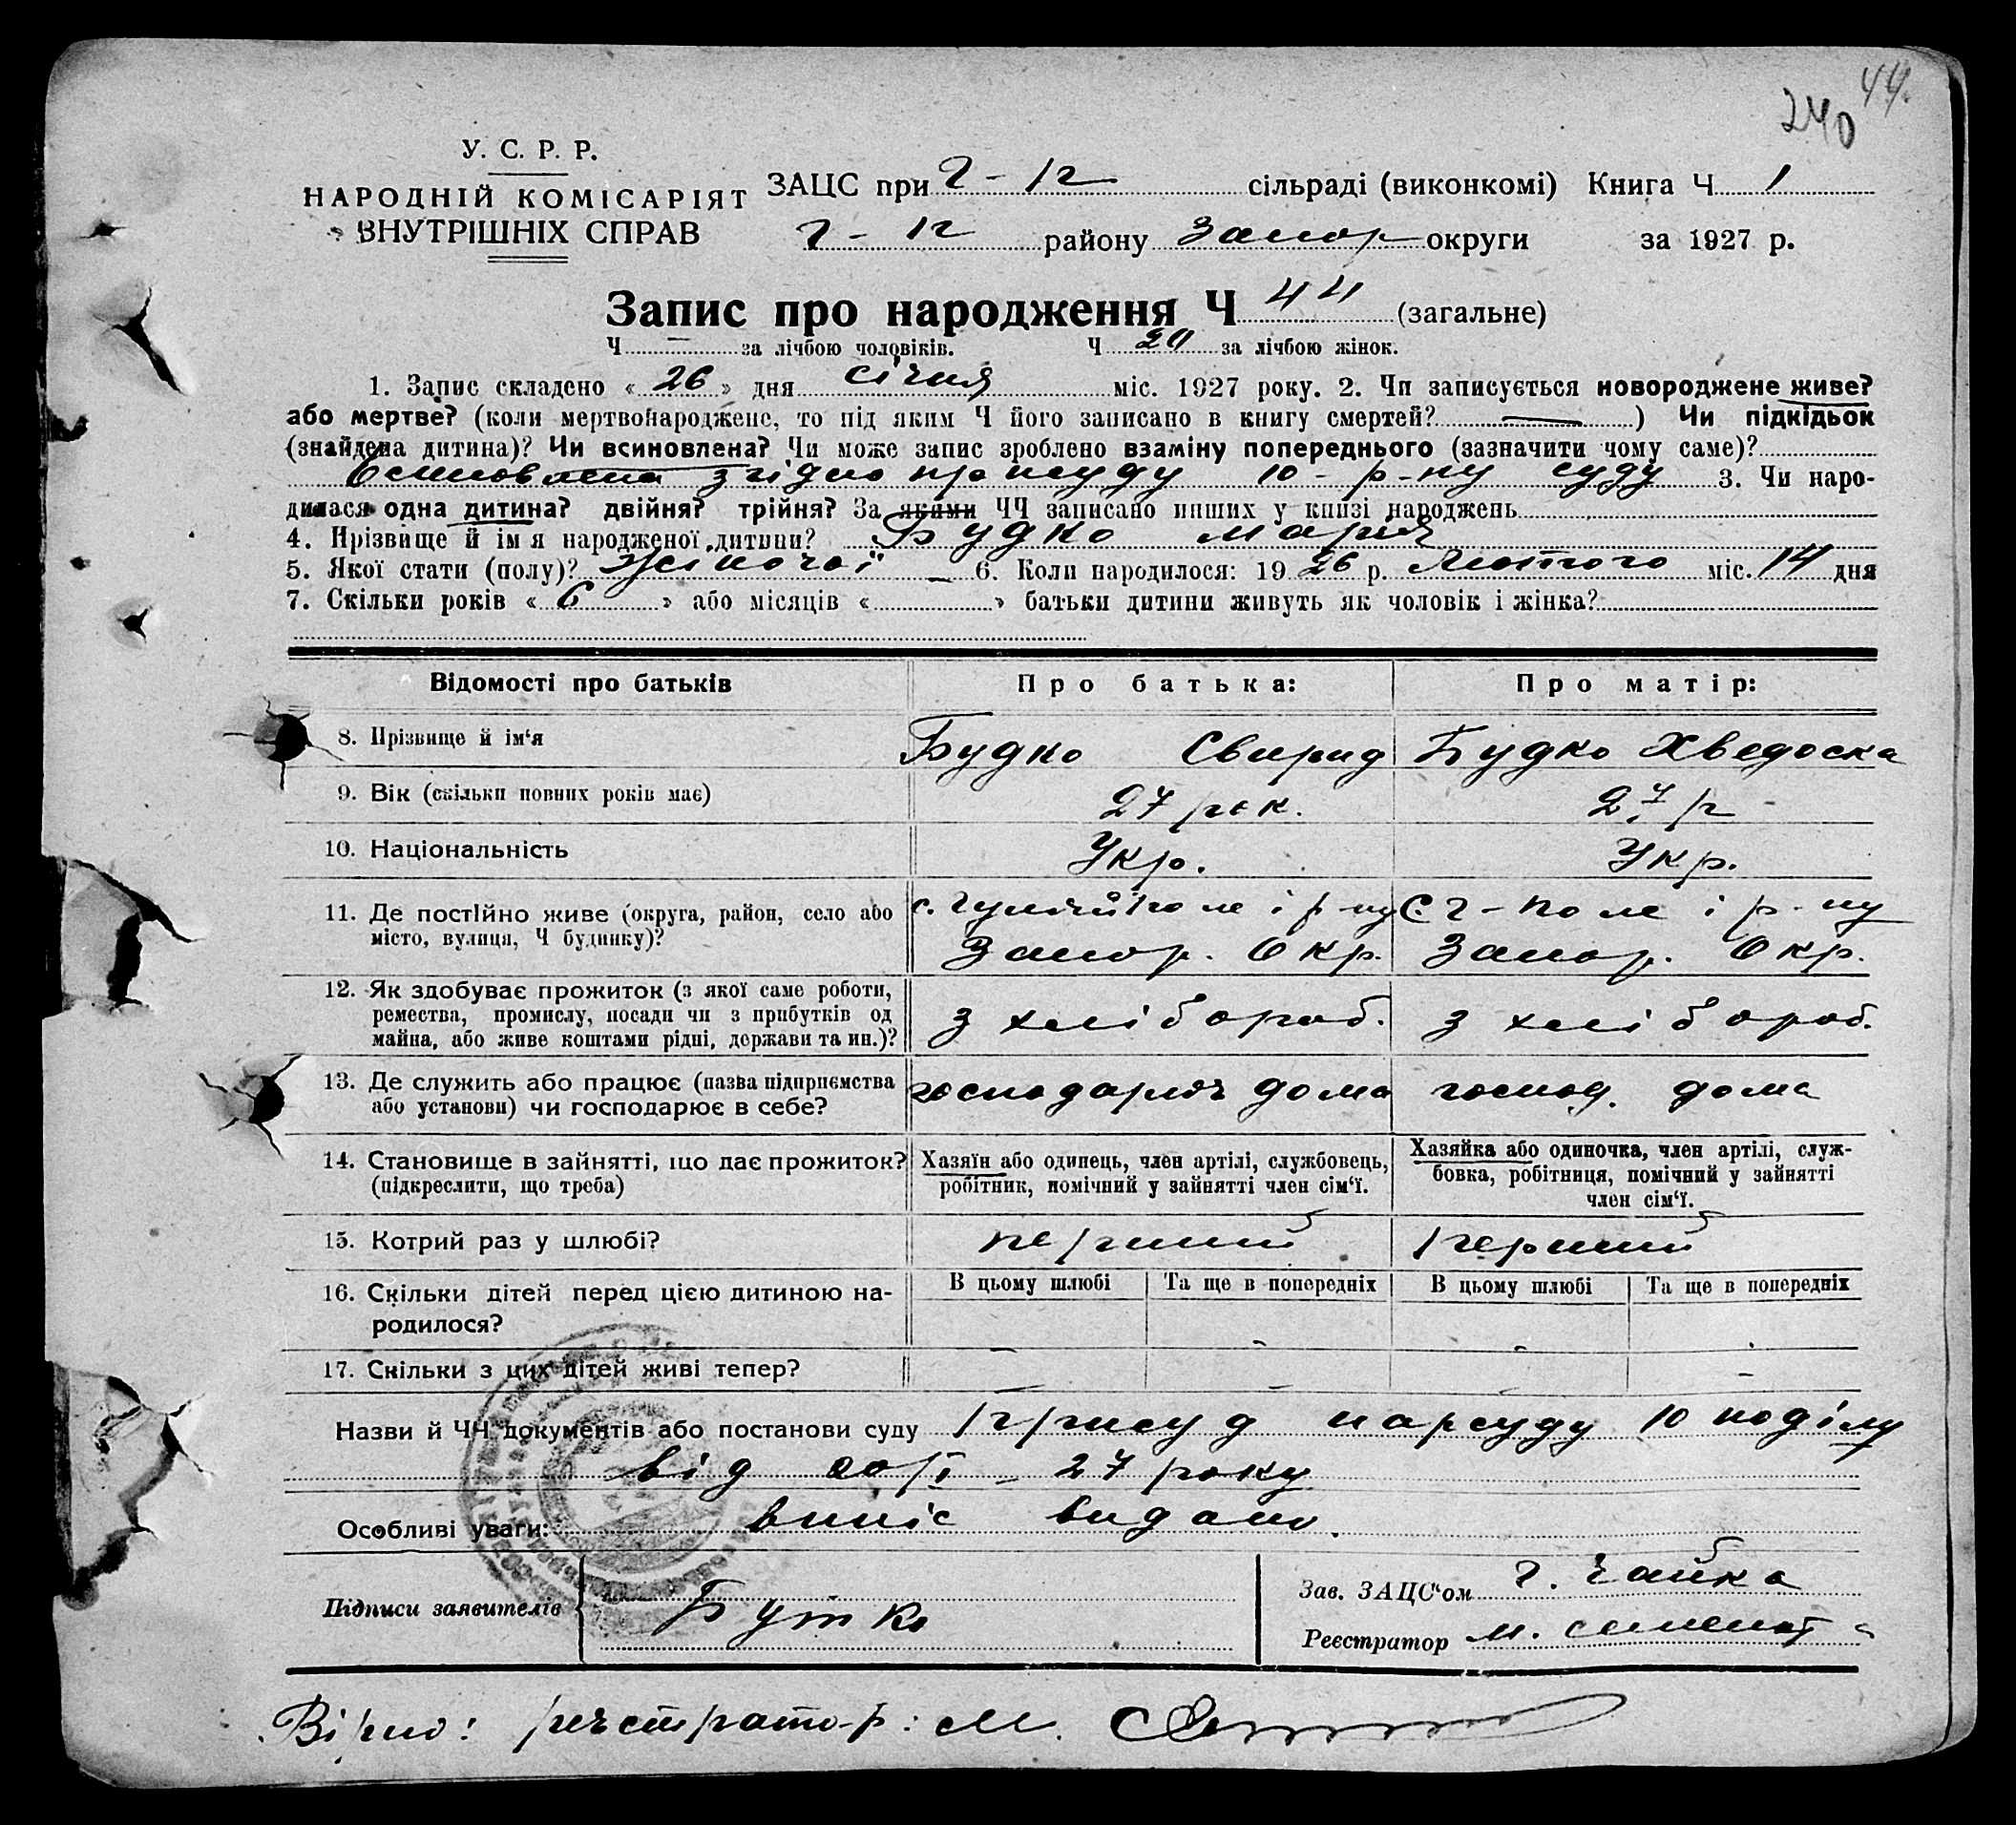 44.
240
У. С. Р. Р.
НАРОДНІЙ КОМІСАРІЯТ
ВНУТРІШНІХ СПРАВ
ЗАЦС при Г-  сільраді (виконкомі) Книга Ч 1
Г-  району Запор округи за 1927 р.
Запис про народження Ч 44 (загальне)
Ч — за лічбою чоловіків. Ч 20 за лічбою жінок.
1. Запис складено « 26 » дня січня міс. 1927 року. 2. Чи записується новороджене живе?
або мертве? (коли мертвонароджене, то під яким Ч його записано в книгу смертей? — ) Чи підкідьок
(знайдена дитина)? Чи всиновлена? Чи може запис зроблено взаміну попереднього (зазначити чому саме)?
Всиновлена згідно присуду 10 - р-ну суду 3. Чи наро-
дилася одна дитина? двійня? трійня? За якими ЧЧ записано инших у книзі народжень
4. Прізвище й ім'я народженої дитини? Будко Марія
5. Якої стати (полу)? Жіночої — 6. Коли народилося: 19 26 р. Лютого міс. 14 дня
7. Скільки років « 6 » або місяців « » батьки дитини живуть як чоловік і жінка?
Відомості про батьків Про батька: Про матір:
8. Прізвище й ім‘я Будко Свирид Будко Хведоска
9. Вік (скільки повних років має) 27 рок. 27 р
10. Національність Укр. Укр.
11. Де постійно живе (округа, район, село або
місто, вулиця, Ч будинку)?
с. Гуляйполе і р-ну
Запор. Окр.
С. Г-поле і р-ну
Запор. Окр.
12. Як здобуває прожиток (з якої саме роботи,
ремества, промислу, посади чи з прибутків од
майна, або живе коштами рідні, держави та ин.)?
з хлібороб. з хлібороб.
13. Де служить або працює (назва підприємства
або установи) чи господарює в себе?
господарюч дома господ. дома
14. Становище в зайнятті, що дає прожиток?
(підкреслити, що треба)
Хазяїн або одинець, член артілі, службовець,
робітник, помічний у зайнятті член сім‘ї.
Хазяйка або одиночка, член артілі, служ-
бовка, робітниця, помічний у зайнятті
член сім‘ї.
15. Котрий раз у шлюбі? перший перший
16. Скільки дітей перед цією дитиною на-
родилося?
В цьому шлюбі Та ще в попередніх В цьому шлюбі Та ще в попередніх
17. Скільки з цих дітей живі тепер?
Назви й ЧЧ документів або постанови суду Присуд нарсуду 10 поділу
від 20/I - 27 року
Особливі уваги: випис видано.
Підписи заявителів Бутко
Зав. ЗАЦС‘ом Г. Чайка
Реєстратор М.
Вірно: реєстратор: М.